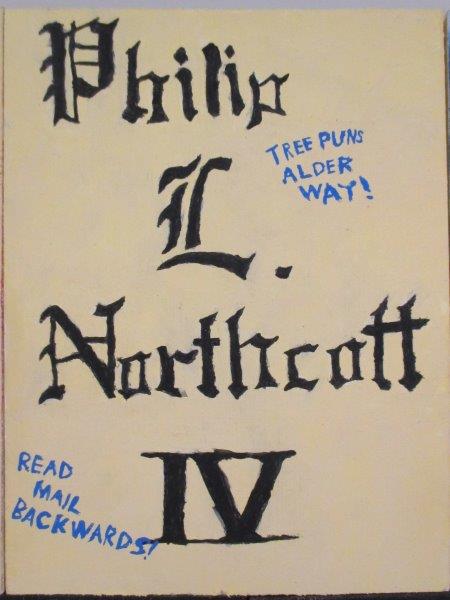 Philip
TREE PUNS
ALDER
WAY!
L.
Northcott
IV
READ
MAIL
BACKWARDS!